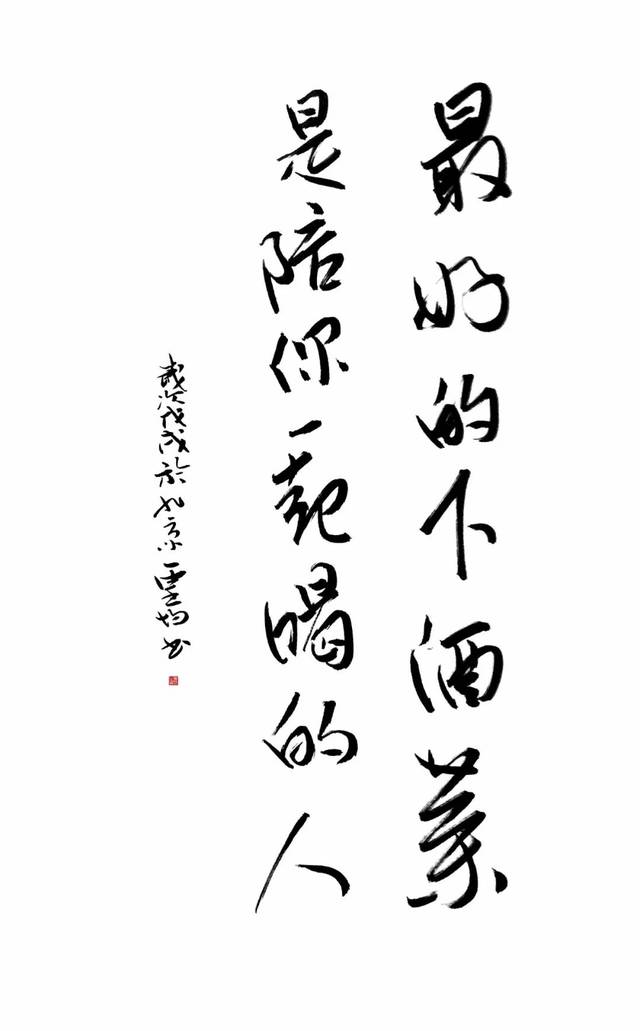 最好的下酒菜
是陪你一起喝的人
岁次戊戌於北京云均书